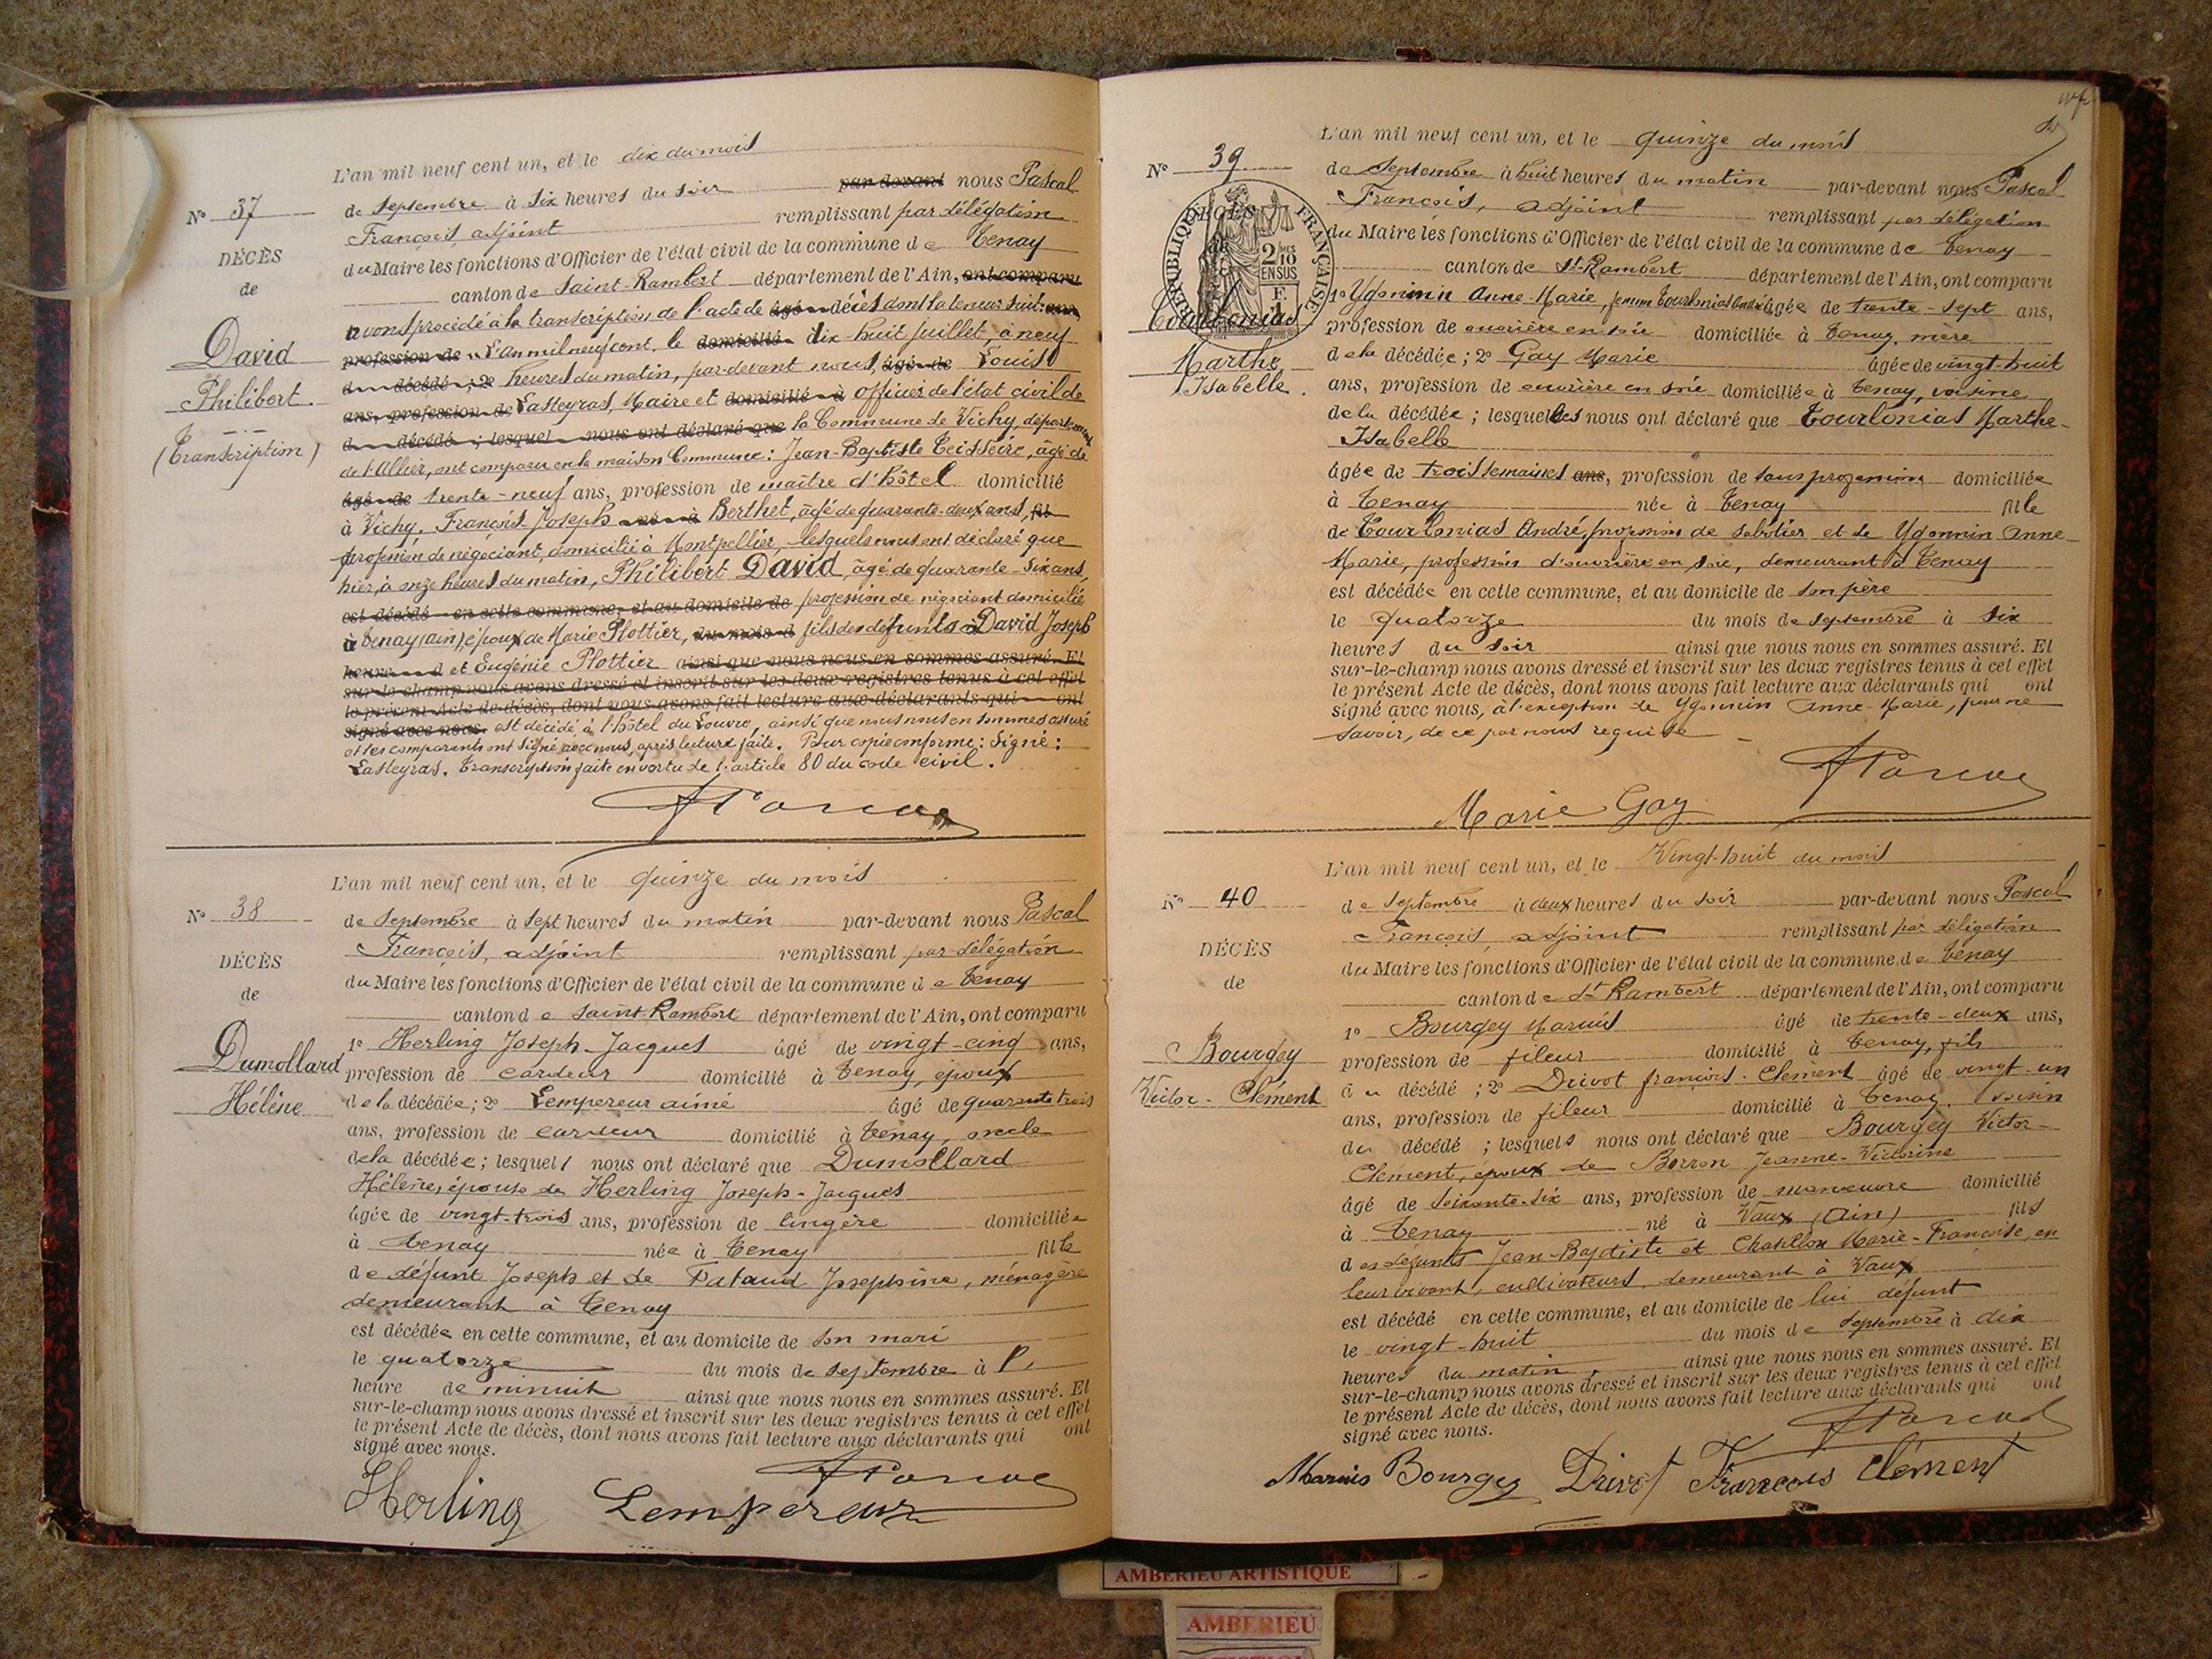 L'an mil neuf cent un, et le dix du mois
N° 37
de Septembre à six heures du soir par-devant nous Pascal
François, adjoint remplissant par délégation
DÉCÈS
du Maire les fonctions d'Officier de l'état civil de la commune de Tenay
de
canton de Saint-Rambert département de l'Ain, ont comparu
avons procédé à la transcription de l'acte de âgé décès dont la teneur suit: ans,
David
profession de "L'an mil neuf cent, le domicilié dix-huit juillet, à neuf
d décédé; 2° heures du matin, par-devant nous, âgé de Louis
Philibert
ans, profession de Lasteyras, Maire et domicilié à officier de l'état civil de
d décédé; lesquel nous ont déclaré que la Commune de Vichy, département
(Transcription)
de l'Allier, ont comparu en la maison Commune: Jean-Baptiste Teisseire, âgé de
âgé de trente-neuf ans, profession de maître d'hôtel domicilié
à Vichy, François Joseph né à Berthet, âgé de quarante-deux ans, fil
profession de négociant, domicilié à Montpellier, lesquels nous ont déclaré que
hier, à onze heures du matin, Philibert David, âgé de quarante-six ans,
est décédé en cette commune, et au domicile de profession de négociant domicilié
à Tenay (ain) époux de Marie Plottier, du mois d fils des défunts David Joseph
heure d et Eugénie Plottier ainsi que nous nous en sommes assuré. Et
sur-le-champ nous avons dressé et inscrit sur les deux registres tenus à cet effet
le présent Acte de décès, dont nous avons fait lecture aux déclarants qui ont
signé avec nous. est décédé à l'hôtel du Louvre, ainsi que nous nous en sommes assuré
et les comparants ont signé avec nous, après lecture faite. Pour copie conforme: Signé:
Lasteyras. Transcription faite en vertu de l'article 80 du code civil.
FPascal
L'an mil neuf cent un, et le quinze du mois
N° 38
de Septembre à sept heures du matin par-devant nous Pascal
François, adjoint remplissant par délégation
DÉCÈS
du Maire les fonctions d'Officier de l'état civil de la commune de Tenay
de
canton de Saint-Rambert département de l'Ain, ont comparu
1° Herling Joseph-Jacques âgé de vingt-cinq ans,
Dumollard
profession de cardeur domicilié à Tenay, époux
Hélène
de la décédée; 2° Lempereur aimé âgé de quarante trois
ans, profession de cardeur domicilié à Tenay, oncle
de la décédée; lesquels nous ont déclaré que Dumollard
Hélène, épouse de Herling Joseph-Jacques
âgée de vingt-trois ans, profession de lingère domiciliée
à Tenay née à Tenay fille
de défunt Joseph et de Pataud Josephine, ménagère
demeurant à Tenay
est décédée en cette commune, et au domicile de son mari
le quatorze du mois de septembre à l'
heure de minuit ainsi que nous nous en sommes assuré. Et
sur-le-champ nous avons dressé et inscrit sur les deux registres tenus à cet effet
le présent Acte de décès, dont nous avons fait lecture aux déclarants qui ont
signé avec nous.
FPascal
Herling Lempereur
L'an mil neuf cent un, et le quinze du mois
N° 39
de Septembre à huit heures du matin par-devant nous Pascal
François, adjoint remplissant par délégation
DÉCÈS
de
RÉPUBLIQUE FRANÇAISE
2 MES
10
EN SUS
du Maire les fonctions d'Officier de l'état civil de la commune de Tenay
canton de St-Rambert département de l'Ain, ont comparu
1° Ygonnin Anne-Marie, femme Tourlonias André âgée de trente-sept ans,
Tourlonias
profession de ouvrière en soie domiciliée à Tenay, mère
Marthe
de la décédée; 2° Gay Marie âgée de vingt-huit
Isabelle
ans, profession de ouvrière en soie domiciliée à Tenay, voisine
de la décédée; lesquelles nous ont déclaré que Tourlonias Marthe-
Isabelle
âgée de trois semaines ans, profession de sans profession domiciliée
à Tenay née à Tenay fille
de Tourlonias André, profession de sabotier et de Ygonnin Anne-
Marie, profession d'ouvrière en soie, demeurant à Tenay
est décédée en cette commune, et au domicile de son père
le quatorze du mois de Septembre à six
heures du soir ainsi que nous nous en sommes assuré. Et
sur-le-champ nous avons dressé et inscrit sur les deux registres tenus à cet effet
le présent Acte de décès, dont nous avons fait lecture aux déclarants qui ont
signé avec nous, à l'exception de Ygonnin Anne-Marie, pour ne
savoir, de ce par nous requise
FPascal
Marie Gay
L'an mil neuf cent un, et le Vingt-huit du mois
N° 40
de Septembre à deux heures du soir par-devant nous Pascal
François, adjoint remplissant par délégation
DÉCÈS
du Maire les fonctions d'Officier de l'état civil de la commune de Tenay
de
canton de St Rambert département de l'Ain, ont comparu
1° Bourgey Marius âgé de trente-deux ans,
Bourgey
profession de fileur domicilié à Tenay, fils
Victor-Clément
du décédé; 2° Drivot françois-Clément âgé de vingt-un
ans, profession de fileur domicilié à Tenay, voisin
du décédé; lesquels nous ont déclaré que Bourgey Victor-
Clément, époux de Borron Jeanne-Victorine
âgé de soixante-six ans, profession de manœuvre domicilié
à Tenay né à Vaux (Ain) fils
des défunts Jean-Baptiste et Chatillon Marie-Françoise, en
leur vivant, cultivateurs, demeurant à Vaux
est décédé en cette commune, et au domicile de lui défunt
le vingt-huit du mois de Septembre à dix
heures du matin, ainsi que nous nous en sommes assuré. Et
sur-le-champ nous avons dressé et inscrit sur les deux registres tenus à cet effet
le présent Acte de décès, dont nous avons fait lecture aux déclarants qui ont
signé avec nous.
FPascal
Marius Bourgey Drivot François Clément
AMBERIEU ARTISTIQUE
AMBERIEU